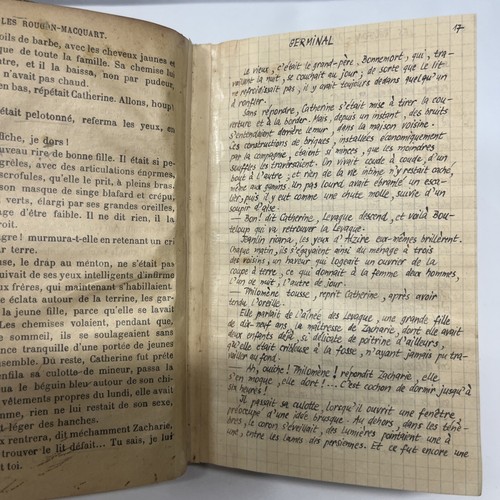 LES ROUGON-MACQUART.
oils de barbe, avec les cheveux jaunes et
que de toute la famille. Sa chemise lui
ntre, et il la baissa, non par pudeur,
n'avait pas chaud.
en bas, répétait Catherine. Allons, houp!
était pelotonné, referma les yeux, en
fiche, je dors!
nouveau rire de bonne fille. Il était si pe-
grêles, avec des articulations énormes,
scrofules, qu'elle le prit, à pleins bras.
son masque de singe blafard et crépu,
verts, élargi par ses grandes oreilles,
age d'être faible. Il ne dit rien, il la
roit.
gre! murmura-t-elle en retenant un cri
r terre.
use, le drap au menton, ne s'était pas
uivait de ses yeux intelligents d'infirme
ux frères, qui maintenant s'habillaient
e éclata autour de la terrine, les gar-
la jeune fille, parce qu'elle se lavait
Les chemises volaient, pendant que,
e sommeil, ils se soulageaient sans
nce tranquille d'une portée de jeunes
ensemble. Du reste, Catherine fut prête
ndila sa culotte de mineur, passa la
ua le béguin bleu autour de son chi-
vêtements propres du lundi, elle avait
mme, rien ne lui restait de son sexe,
t léger des hanches.
x rentrera, dit méchamment Zacharie,
trouver le lit défait... Tu sais, je lui
t toi.
17
GERMINAL
Le vieux, c'était le grand-père, Bonnemort, qui, tra-
vaillant la nuit, se couchait au jour; de sorte que le lit
ne refroidissait pas, il y avait toujours dedans quelqu'un
à ronfler.
Sans répondre, Catherine s'était mise à tirer la cou-
verture et à la border. Mais, depuis un instant, des bruits
s'entendaient derrière le mur, dans la maison voisine.
Ces constructions de briques, installées économiquement
par la compagnie, étaient si minces, que les moindres
souffles les traversaient. On vivait coude à coude, d'un
bout à l'autre; et rien de la vie intime n'y restait caché,
même aux gamins. Un pas lourd avait ébranlé un esca-
lier, puis il y eut comme une chute molle, suivie d'un
soupir d'aise.
— Bon! dit Catherine, Levaque descend, et voilà Bou-
teloup qui va retrouver la Levaque.
Jeanlin ricana, les yeux d'Alzire eux-mêmes brillèrent.
Chaque matin, ils s'égayaient ainsi du ménage à trois
des voisins, un haveur qui logeait un ouvrier de la
coupe à terre, ce qui donnait à la femme deux hommes,
l'un de nuit, l'autre de jour.
— Philomène tousse, reprit Catherine, après avoir
tendu l'oreille.
Elle parlait de l'aînée des Levaque, une grande fille
de dix-neuf ans, la maîtresse de Zacharie, dont elle avait
deux enfants déjà, si délicate de poitrine d'ailleurs,
qu'elle était cribleuse à la fosse, n'ayant jamais pu tra-
vailler au fond.
— Ah, ouiche! Philomène! répondit Zacharie, elle
s'en moque, elle dort!... C'est cochon de dormir jusqu'à
six heures!
Il passait sa culotte, lorsqu'il ouvrit une fenêtre,
préoccupé d'une idée brusque. Au dehors, dans les ténè-
bres, le coron s'éveillait, des lumières pointaient une à
une, entre les lames des persiennes. Et ce fut encore une